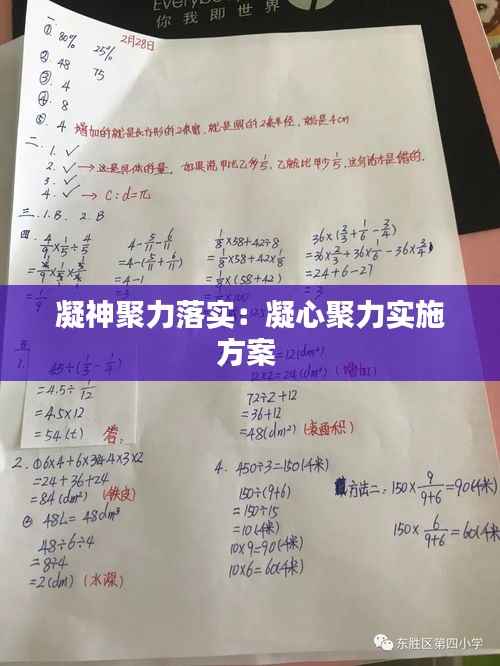 Everybody
你我即世界
2月28日
一
① 80% 25%
② 48 75
③ 4
④ 8
⑤ 4 增加的就是长方形的2条宽,就是圆的2条半径,就是4cm
二、1.✓
2.✓→这是具体的量,如果是甲比乙多1/5,乙就比甲少1/5,这句话才是错的.
3.✓
4.✓→C:d=π
三、1.B、2.B
四、4/9×1/5÷4/5 4-5/11-6/11 1/8×58+42÷8 36×(2/3+1/6-3/4)
=4-(5/11+6/11) =1/8×58+42×1/8 =36×2/3+36×1/6-36×3/4
=4-1 =1/8×(58+42) =24+6-27
1/9 =3
凝神聚力落实:凝心聚力实施
方案
五
1. 45÷(1/3-1/4)
=4.5÷1/12
=4.5×12
=54(t) 答,
=12(dm)
12×2=24(dm²)(增加)
72÷2+12
=36+12
=48(dm²)(表面积)
2.①6×4+6×3
=24+36+24
=84(dm²)(铁皮)
② 48L=48dm³
48÷6÷4
=8÷4
=2(dm)(水深)
4. 450÷3=150(千米)
150÷(9+6)
=150÷15
=10(千米)
10×9=90(千米)
10×6=60(千米)
方法二:150×9/(9+6)=90(千米)
150×6/(9+6)=60(千米)
东胜区第四小学